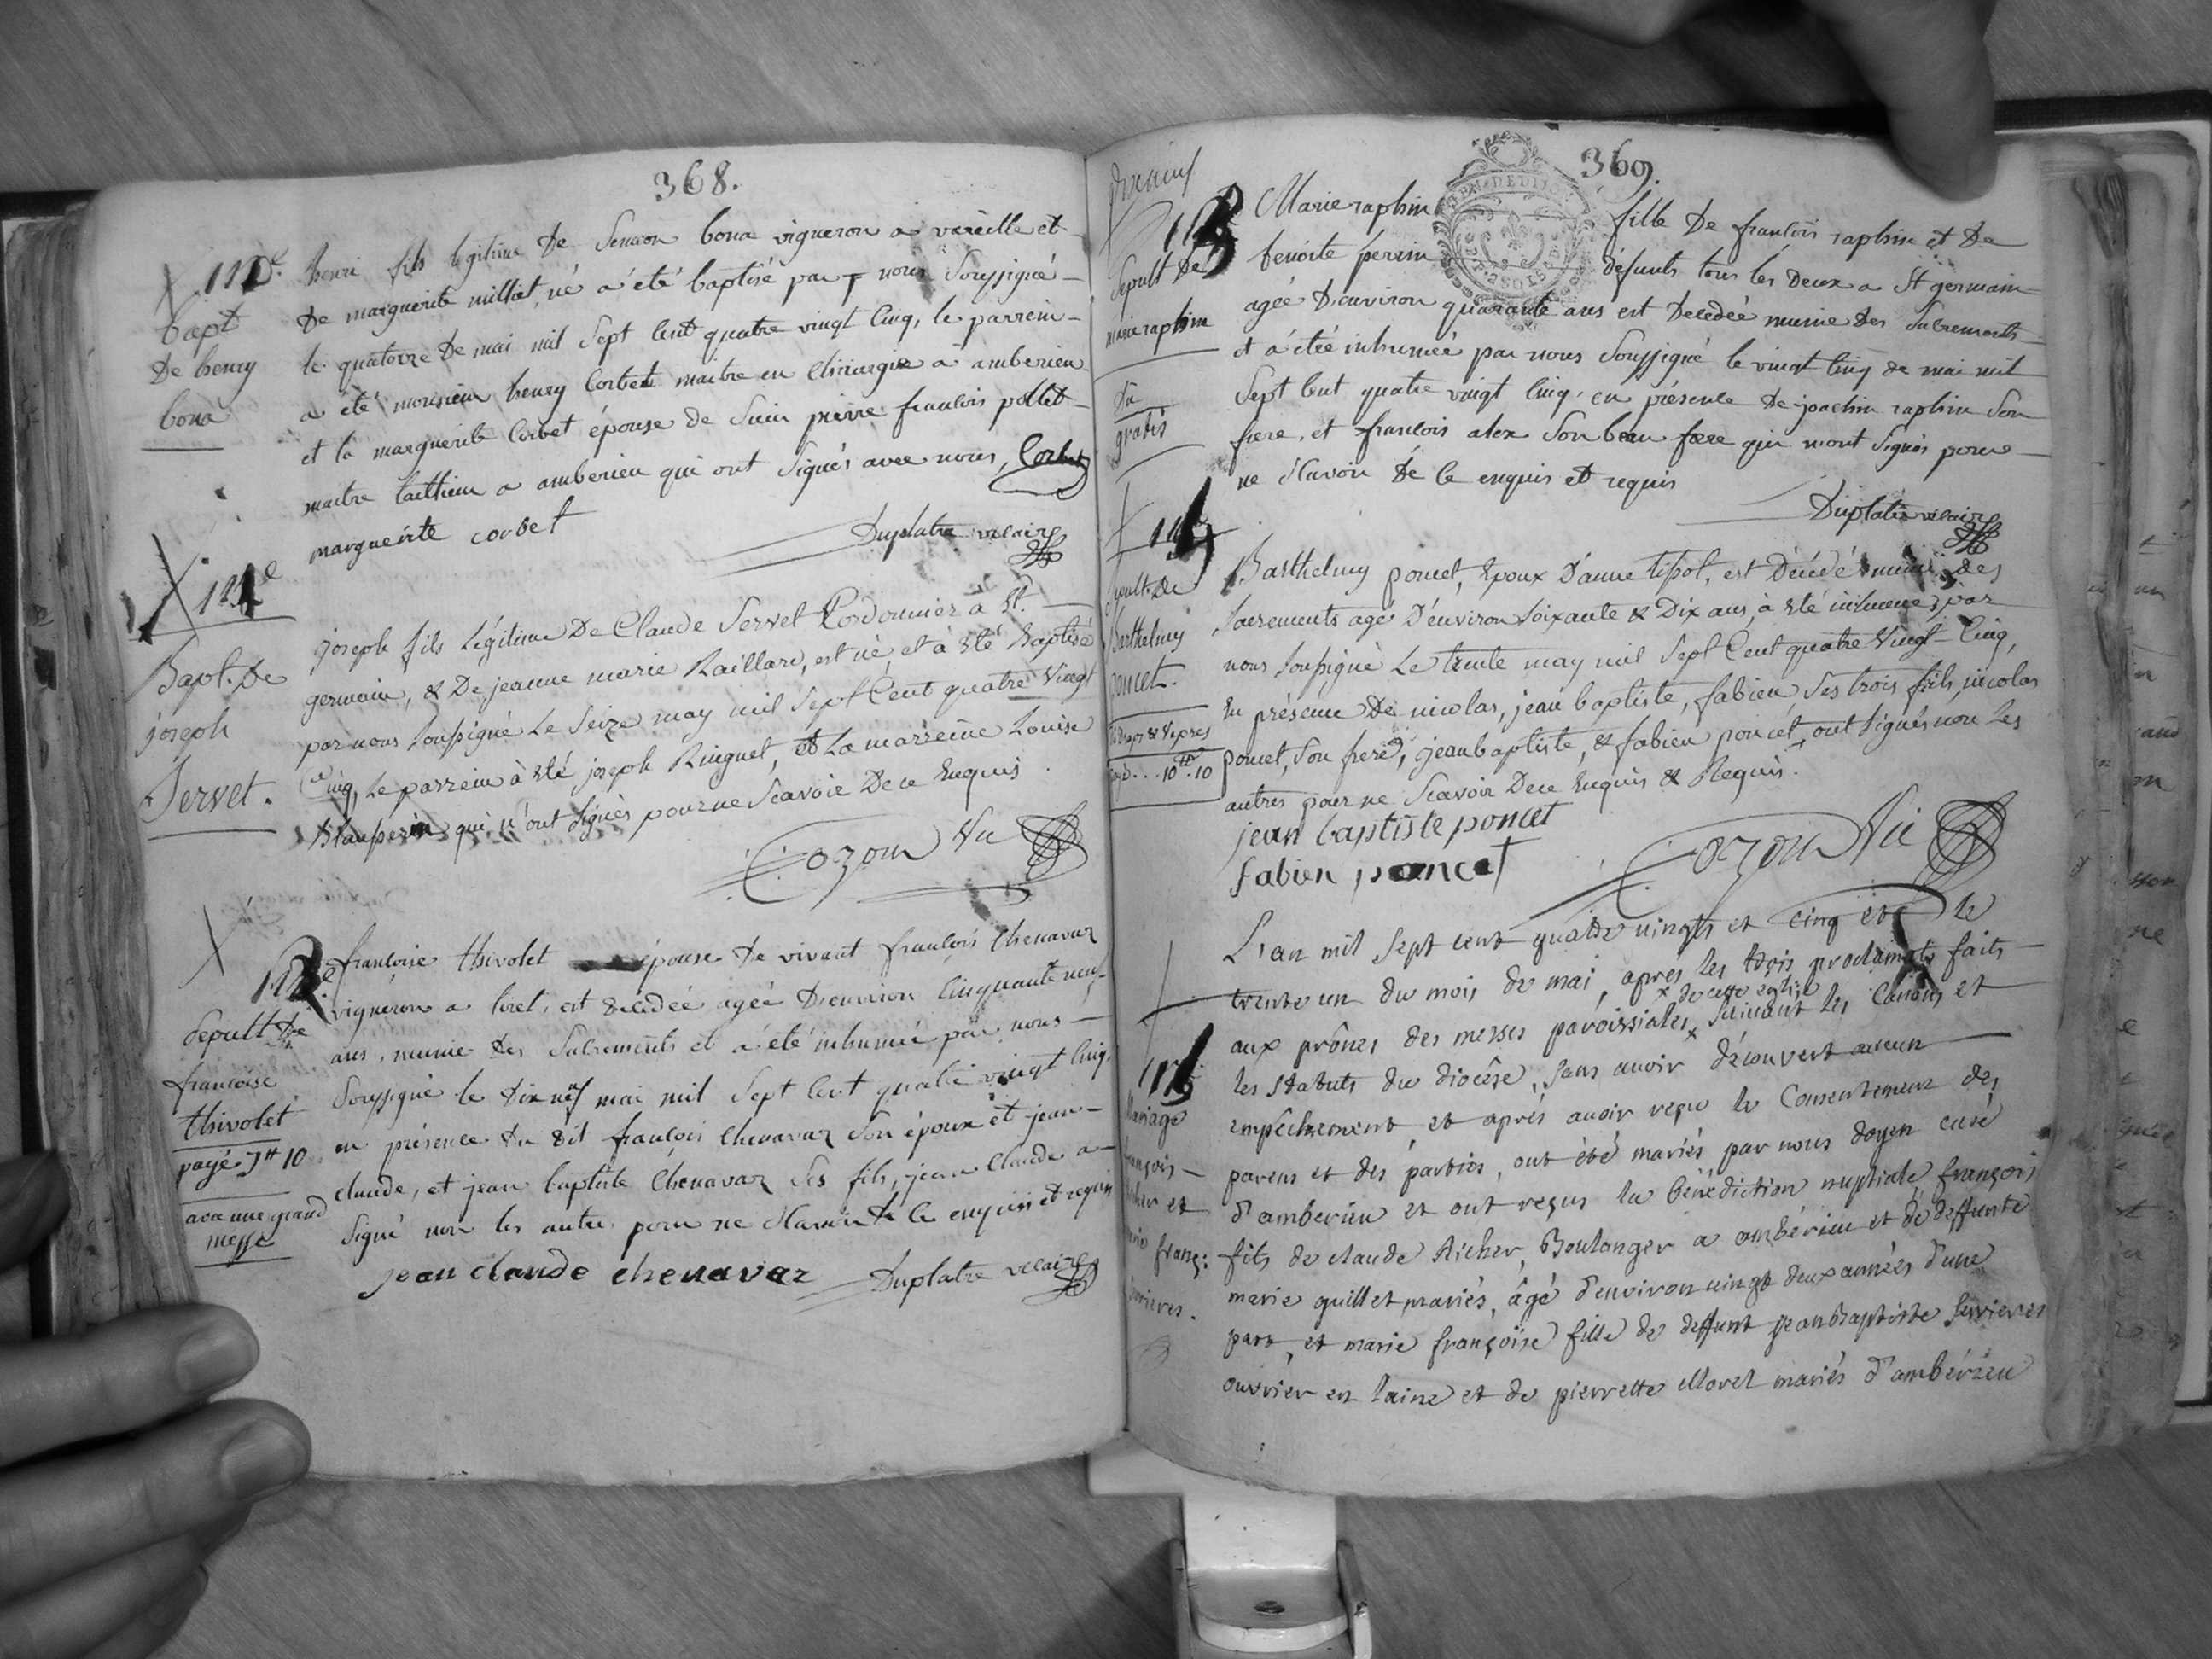 368.
bapt
De henry
bona
henri fils légitime De Simeon bona vigneron a vareille et
De marguerite milliet, né a été baptisé par nous soussigné
le quatorze De mai mil sept cent quatre vingt cinq, le parrein
a été monsieur henry Corbet maitre en chirurgie a amberieu
et la marguerite Corbet épouse de Sieur pierre françois pollet
maitre tailleur a amberieu qui ont signés avec nous, Corbet
marguerite corbet
Duplatre vicaire
Bapt. De
joseph
Servet.
joseph fils Légitime De Claude Servet Cordonnier a St.
germain, & De jeanne marie Raillard, est né, et à été Baptisé
par nous soussigné Le Seize may mil Sept Cent quatre Vingt
Cinq, Le parrein à été joseph Ringuet, et La marreine Louise
qui n'ont signés pour ne Scavoir De ce Enquis.
Cozon Vic
sepult De
francoise
thivolet
payé 7tt 10
avec une grand
messe
francoise thivolet épouse De vivant françois Chenavaz
vigneron a toret, est decedée agée D'environ Cinquante neuf
ans, munie des Sacrements et a été inhumée par nous
soussigné le Dix neuf mai mil Sept Cent quatre vingt Cinq.
en présence du dit françois Chenavaz son époux et jean
claude, et jean baptiste Chenavaz ses fils, jean claude a
signé non les autres pour ne scavoir de ce enquis et requis
jean claude chenavaz
Duplatre vicaire
369.
Sepult De
marie raphin
gratis
Marie raphin fille De francois raphin et De
benoite perrin défunts tous les deux a St germain
agée D'environ quarante ans est Decedée munie Des Sacrements
et a été inhumée par nous soussigné le vingt cinq de mai mil
Sept Cent quatre vingt Cinq, en présence De joachim raphin Son
frere, et francois alex Son beau frere qui n'ont signés pour
ne scavoir De ce enquis et requis
Duplatre vicaire
Sepult. De
Barthelmy
poncet.
Vepres
payé...10tt.10
Barthelmy poncet, Epoux D'anne tipot, est Décédé muni des
Sacrements agé D'environ Soixante & Dix ans, à été inhumé par
nous Soussigné Le trente may mil Sept Cent quatre Vingt Cinq,
En présence De nicolas, jean baptiste, fabien, Ses trois fils, nicolas
poncet, Son frere, jean baptiste, & fabien poncet, ont signés non Les
autres pour ne Scavoir De ce Enquis & Requis.
jean baptiste poncet
fabien poncet
Cozon Vic
Mariage
françois
Richer et
marie franç:
Serrieres.
L'an mil sept cent quatre vingts et cinq et le
trente un du mois de mai, apres les trois proclamats faits
aux prônes des messes paroissiales x de cette eglise suivant les Canons et
les statuts du diocése, sans avoir découvert aucun
empêchement, et aprés avoir reçu le Consentement des
parens et des parties, ont été mariés par nous doyen curé
d'amberieu et ont reçus la bénédiction nuptiale françois
fils de claude Richer, Boulanger a ambérieu et de deffunte
marie guillet mariés, âgé d'environ vingt deux années d'une
part, et marie françoise fille de deffunt jean Baptiste Serrieres
ouvrier en laine et de pierrette Morel mariés d'ambérieu